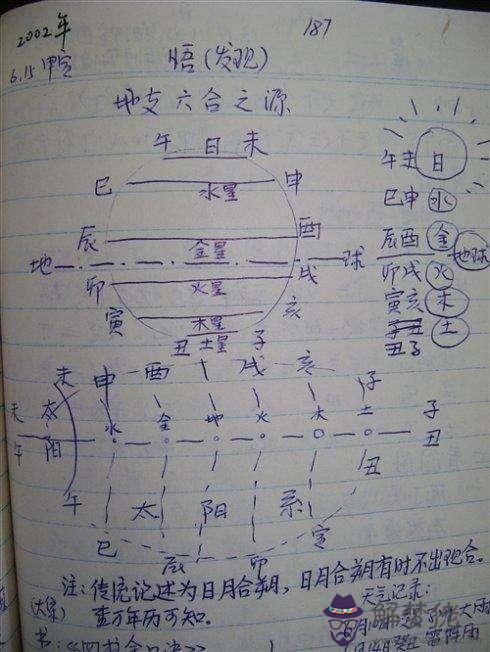 2002年
187
6.15 甲寅
悟(发现)
地支六合之源
午 日 未
巳 申
水星
辰 酉
金星
地 球
卯 戌
火星
寅 亥
木星
丑 土星 子
午未 日
巳申 水
辰酉 金
地球
卯戌 火
寅亥 木
子丑
丑子 土
未 申 酉 戌 亥 子
未 太 水 金 地 火 木 土 子
午 阳 丑
午 太 阳 系 丑
巳 辰 卯 寅
注:传统记述为日月合朔,日月合朔有时不出现合。
(大家) 查万年历可知。
天气记录:
大雨
癸丑 雷阵雨
书:《四书金口决》
解梦佬